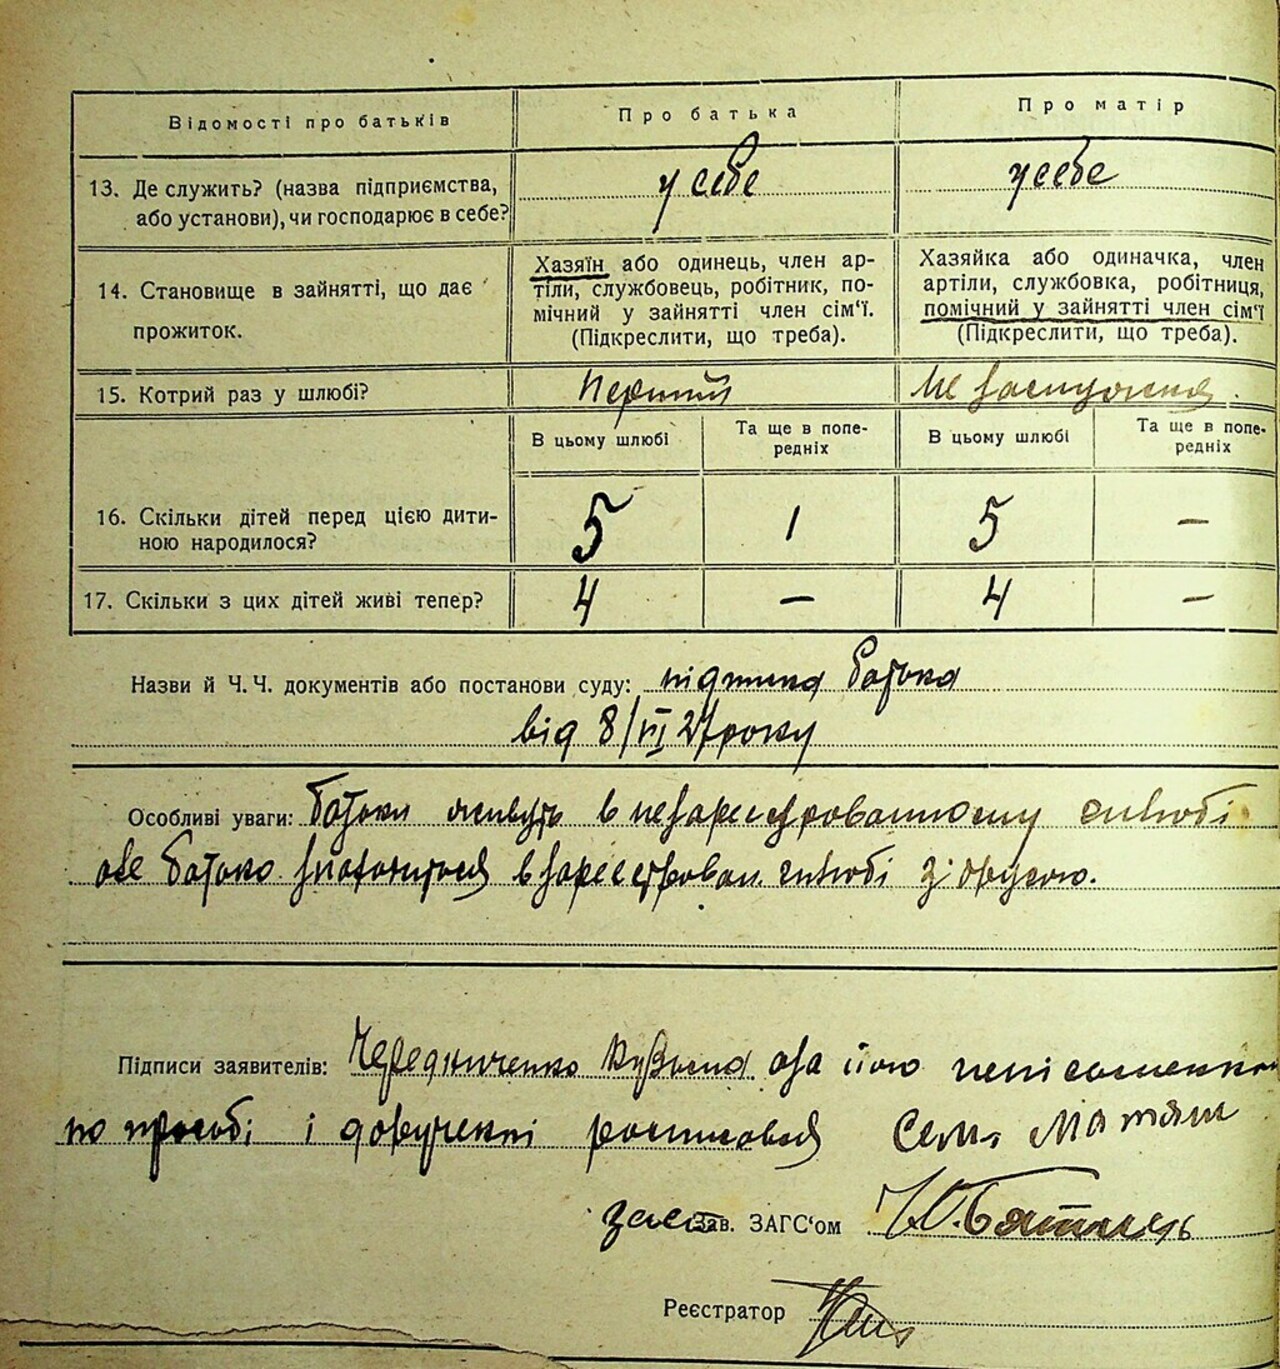 Відомості про батьків
Про батька
Про матір
13. Де служить? (назва підприємства,
або установи), чи господарює в себе?
у себе
у себе
14. Становище в зайнятті, що дає
прожиток.
Хазяїн або одинець, член ар-
тіли, службовець, робітник, по-
мічний у зайнятті член сім'ї.
(Підкреслити, що треба).
Хазяйка або одиначка, член
артіли, службовка, робітниця,
помічний у зайнятті член сім'ї
(Підкреслити, що треба).
15. Котрий раз у шлюбі?
Перший
Не
В цьому шлюбі
Та ще в попе-
редніх
В цьому шлюбі
Та ще в попе-
редніх
16. Скільки дітей перед цією дити-
ною народилося?
5
1
5
—
17. Скільки з цих дітей живі тепер?
4
—
4
—
Назви й Ч.Ч. документів або постанови суду: підписка батька
від 8/VI 27 року
Особливі уваги: батьки живуть в незарегестрованному шлюбі
але батько знаходиться в зарегестрован. шлюбі з другою.
Підписи заявителів: Чередниченко Кузьма а за його неписьменно
по прозьбі і дорученні росписовся Семен Матяш
заст Зав. ЗАГС'ом
Реєстратор